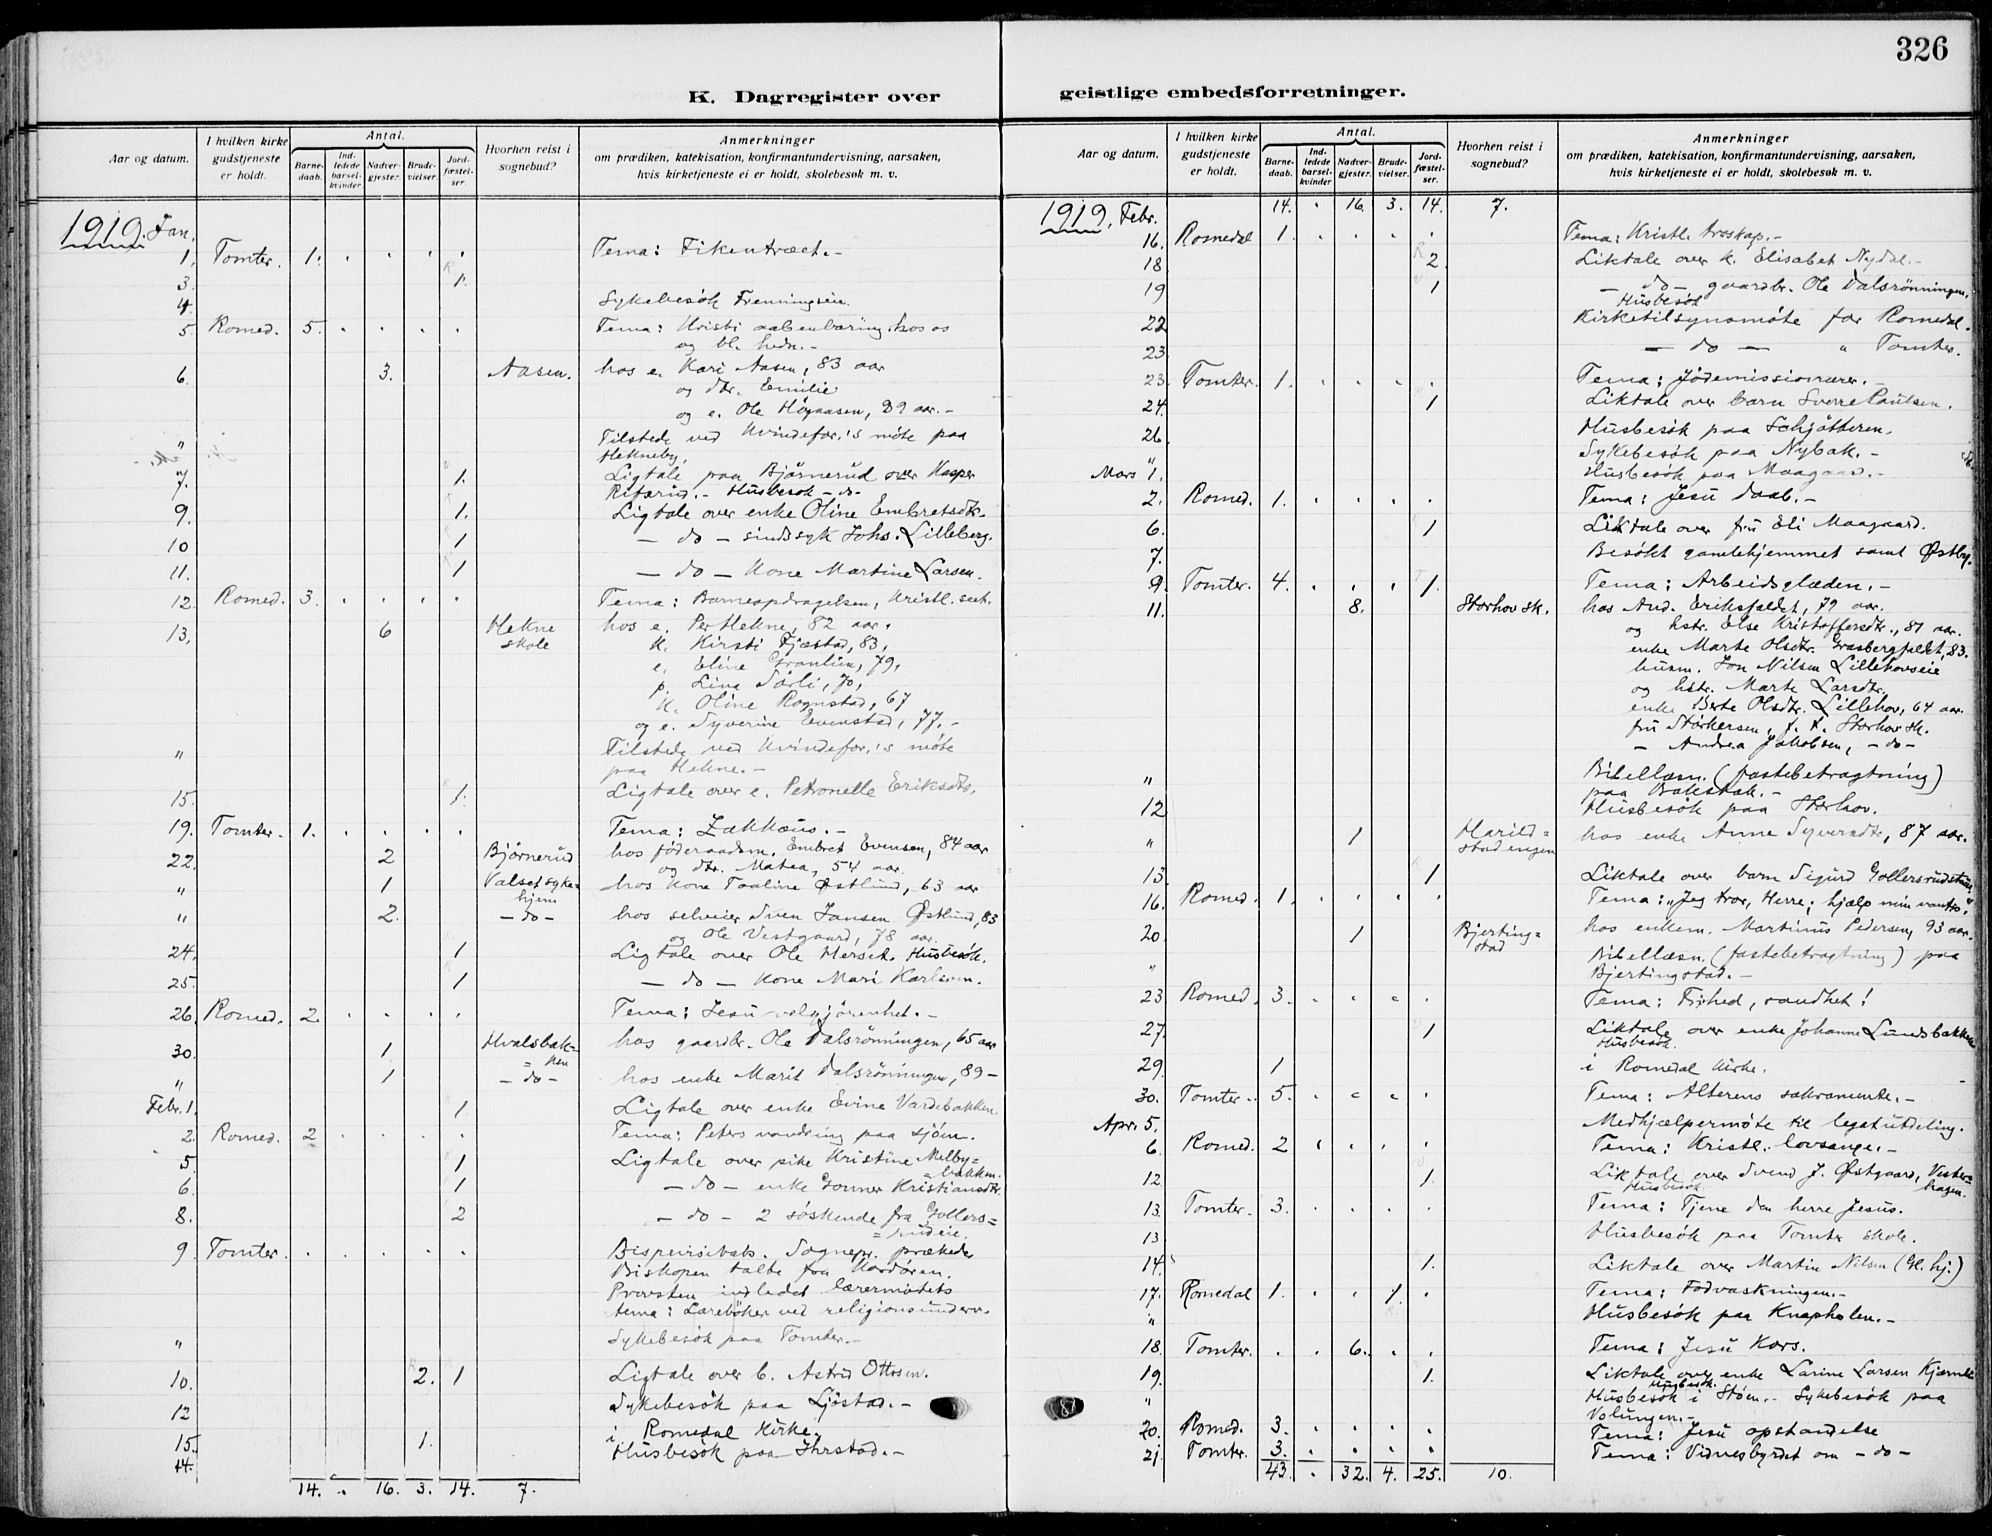 326
K. Dagregister over geistlige embedsforretninger.
Aar og datum. I hvilken kirke gudstjeneste er holdt. Antal. Barne-daab. Ind-ledede barsel-kvinder. Nadver-gjester. Brude-vielser. Jord-fæstel-ser. Hvorhen reist i sognebud? Anmerkninger om prædiken, katekisation, konfirmantundervisning, aarsaken, hvis kirketjeneste ei er holdt, skolebesøk m. v.
1919. Jan.
1. Tomter. 1. . . . . Tema: Fikentræet.-
3. 1.
4. Sykebesök Frenningseie.
5. Romed. 5. . . . . Tema: Kristi aabenbaring hos os
og bl. hedn.-
6. 3. Aasen. hos e. Kari Aasen, 83 aar
og dtr. Emilie
og e. Ole Högaasen, 89 aar.-
" Tilstede ved Kvindefor.'s möte paa
Hekneby.
7. 1. Ligtale paa Björnerud over Kasper
- Husbesök -do-
9. 1. Ligtale over enke Oline Embretsdtr.
10 1 - do - sindssyk Johs. Lilleberg.
11. 1 - do - Kone Martine Larsen.
12. Romed. 3. . . . . Tema: Barneopdragelsen, Kristl. sect.
13. 6 Hekne skole hos e. Per Hekne, 82 aar.
K. Kirsti Fjæstad, 83,
e. Eline Granlien, 79,
p. Lina Sörli, 70,
K. Oline Rognstad, 67
og e. Syverine Evenstad, 77.-
" Tilstede ved Kvindefor.'s möte
paa Hekne.-
15. 1. Ligtale over e. Petronelle Eriksdtr.
19. Tomter. 1. . . . . Tema: Zakkæus.-
22. 2 Bjørnerud hos föderaadsm. Embret Evensen, 84 aar
og dtr. Matea, 54 aar.
" 1 Valset syke-hjem hos Kone Pauline Østlund, 63 aar
" 2. - do - hos selveier Sven Jansen Østlund, 83
og Ole Vestgaard, 78 aar.
24. 1 Ligtale over Ole Herset. Husbesök.
25. 1 - do - Kone Mari Karlsen.
26. Romed. 2. . . . . Tema: Jesu velgjörenhet.-
30. 1. Hvalsbak-ken hos gaardbr. Ole Dalsrönningen, 65 aar
" 1 - do - hos enke Marit Dalsrönningen, 89 -
Febr. 1. 1. Ligtale over enke Evine Vardebakken
2. Romed. 2 . . . . Tema: Peters vandring paa sjöen.
5 1 Ligtale over pike Kristine Melby-
=bakken.
6. 1 - do - enke Gonner Kristiansdtr.
8. 2 - do - 2 söskende fra Gollers=
=rudeie.
9. Tomter. . . . . . Bispevisitats. Sognepr. prækede
Biskopen talte fra Kordören.
Provsten indledet lærermötets
tema: Læreböker ved religionsunderv.
" Sykebesök paa Tomter.-
10. 2. 1 Ligtale over b. Astrid Ottosen.
12 Sykebesök paa Ljöstad.-
15. 1. i Romedal Kirke.
14. Husbesök paa Ihrstad.-
14. . 16. 3. 14. 7.
Aar og datum. I hvilken kirke gudstjeneste er holdt. Antal. Barne-daab. Ind-ledede barsel-kvinder Nadver-gjester. Brude-vielser. Jord-fæstel-ser. Hvorhen reist i sognebud? Anmerkninger om prædiken, katekisation, konfirmantundervisning, aarsaken, hvis kirketjeneste ei er holdt, skolebesøk m. v.
1919, Febr. 14. . 16. 3. 14. 7.
16. Romedal 1. . . . . Tema: Kristl. troskap.-
18 2. Liktale over k. Elisabet Nydal.-
19 1 - do - gaardbr. Ole Dalsrönningen.
Husbesök
22 Kirketilsynsmöte for Romedal.
23. - do - " Tomter.
23. Tomter. 1. . . . . Tema: Jödemissionærer.-
24. 1 Liktale over barn Sverre Paulsen.
26. Husbesök paa Schjötteren.
" Sykebesök paa Nybak.-
Mars 1. Husbesök paa Maagaard.-
2. Romed. 1. . . . . Tema: Jesu daab.-
6. 1 Liktale over fru Eli Maagaard.
7. Besökt gamlehjemmet samt Østby.
9. Tomter. 4. . . . 1. Tema: Arbeidsglæden.-
11. 8. Storhov sk. hos And. Eriksfældet, 79 aar.
og hstr. Else Kristoffersdtr., 81 aar.
enke Marte Olsdtr. Grasbergfeldet, 83.
husm. Jon Nilsen Lillehovseie
og hstr. Marte Larsdtr.
enke Berte Olsdtr. Lillehov, 64 aar.
fru Störkersen, f. t. Storhov sk.
- Andrea Jakobsen, - do -
" Bibellæsn. (fastebetragtning)
paa Bakstak.-
12 Husbesök paa Storhov.
" 1 Harild=stad engen hos enke Anne Syversdtr, 87 aar.
13. 1 Liktale over barn Sigurd Gollersrudstuen
16. Romed. 1. . . . . Tema: "Jeg tror, Herre; hjælp min vantro."
20 1 Bjerting=stad hos enkem. Martinus Pedersen, 93 aar.
" Bibellæsn. (fastebetragtning) paa
Bjertingstad.-
23 Romed. 3. . . . . Tema: Frihed, sandhet!
27. 1 Liktale over enke Johanne Lundsbakken
Husbesök.
29. 1 i Romedal Kirke.
30. Tomter. 5. . . . . Tema: Alterens sakramente.-
Apr. 5. Medhjælpermöte til legatutdeling.
6. Romed. 2 . . . . Tema: Kristl. lovsange.-
12 1. Liktale over Svend J. Østgaard, Vester=
Husbesök. hagen.
13. Tomter. 3. . . . . Tema: Tjene den herre Jesus.
13 Husbesök paa Tomter skole.
14. 1. Liktale over Martin Nilsen (Gl. hj.)
17. Romedal 1. . . 1. . Tema: Fodvaskningen.-
" Husbesök paa Knapholen.-
18. Tomter. . . 6. . . Tema: Jesu Kors.
19. 1. Liktale over enke Larine Larsen Kjærnli
Husbesök.
" Husbesök i Støen.- Sykebesök paa
Volungen.-
20. Romed. 3. . . . . Tema: Jesu opstandelse
21. Tomter. 3. . . . . Tema: Vidnesbyrdet om - do -
43. . 32. 4. 25. 10.